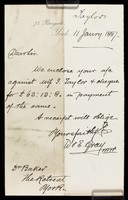 Taylor
York 11 Janry 1887.
Dear Sir
We enclose your a/c
against Mrs J. Taylor & cheque
for £ 63: 13: 9. in payment
of the same.
A receipt will oblige
Yours faithfully
Wm E. Gray
Dr Baker
The Retreat
York.